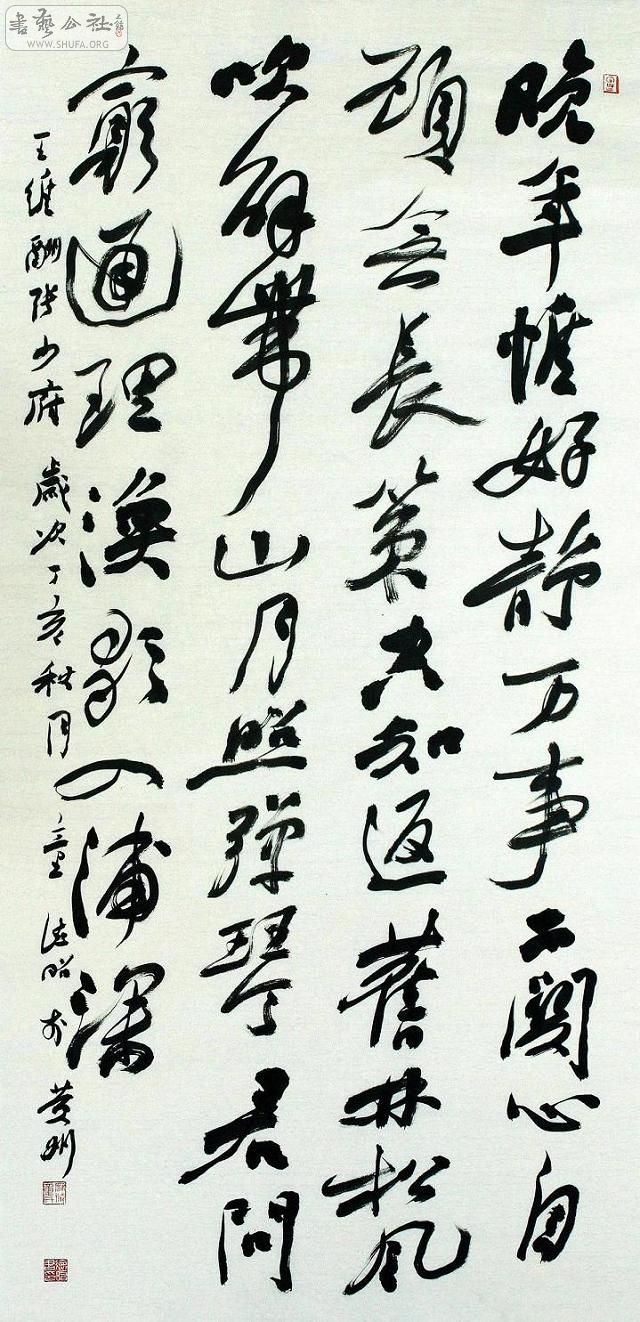 書藝公社
WWW.SHUFA.ORG
晚年惟好静万事不関心自
顧無長策空知返舊林松風
吹解带山月照弹琴君問
窮通理渔歌入浦深
王维酬张少府 歲次丁亥秋月 童 於黄州